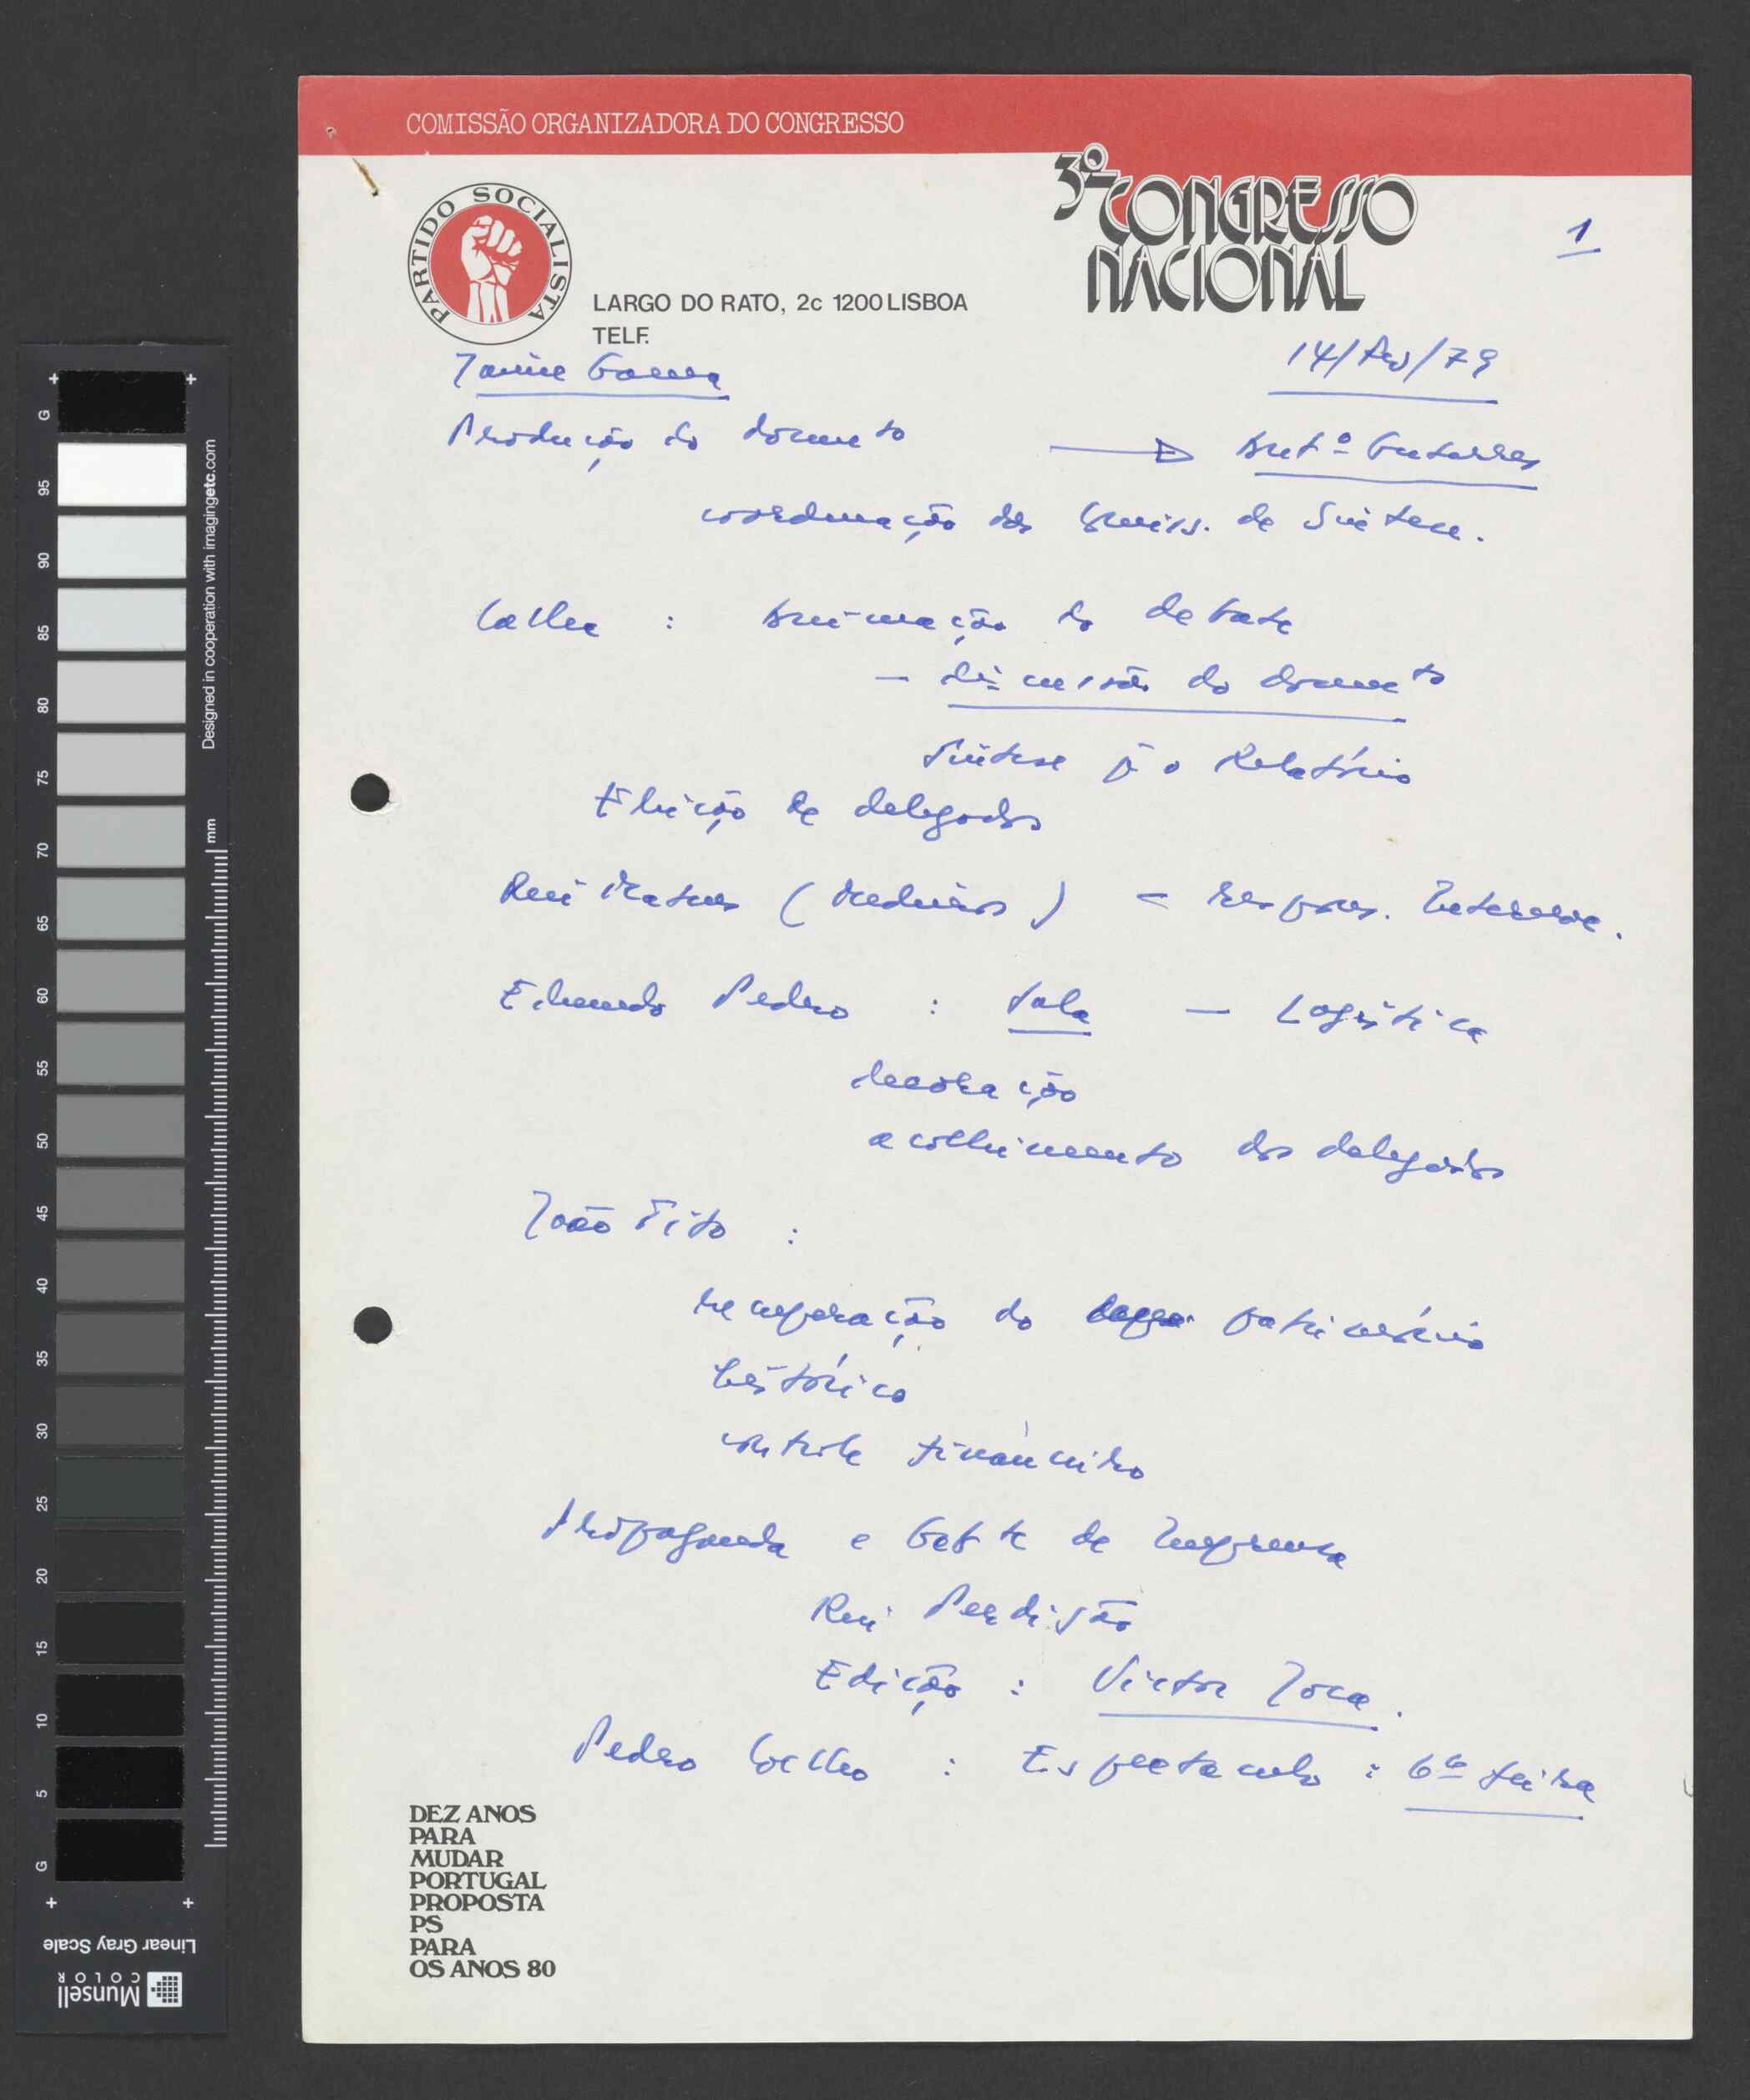 COMISSÃO ORGANIZADORA DO CONGRESSO
3º CONGRESSO
NACIONAL
1
PARTIDO SOCIALISTA
LARGO DO RATO, 2c 1200 LISBOA
TELF.
Jaime Gama
14/Fev/79
Produção do documento → Antº Guterres
coordenação das Comiss. de Síntese.
: Animação do debate
- discussão do documento
Síntese p. o Relatório
Eleição de delegados
Rui Mateus ( ) - respons. Internac.
Edmundo Pedro : Sala - Logística
decoração
acolhimento dos delegados
João Tito :
recuperação do património
histórico
controle financeiro
Propaganda e Gabte de Imprensa
Rui Perdigão
Edição : Victor
Pedro Coelho : Espectaculo : 6ª feira
DEZ ANOS
PARA
MUDAR
PORTUGAL
PROPOSTA
PS
PARA
OS ANOS 80
G
95
90
85
80
75
70
65
60
55
50
45
40
35
30
25
20
15
10
5
G
Designed in cooperation with imagingetc.com
mm
Linear Gray Scale
Munsell
COLOR